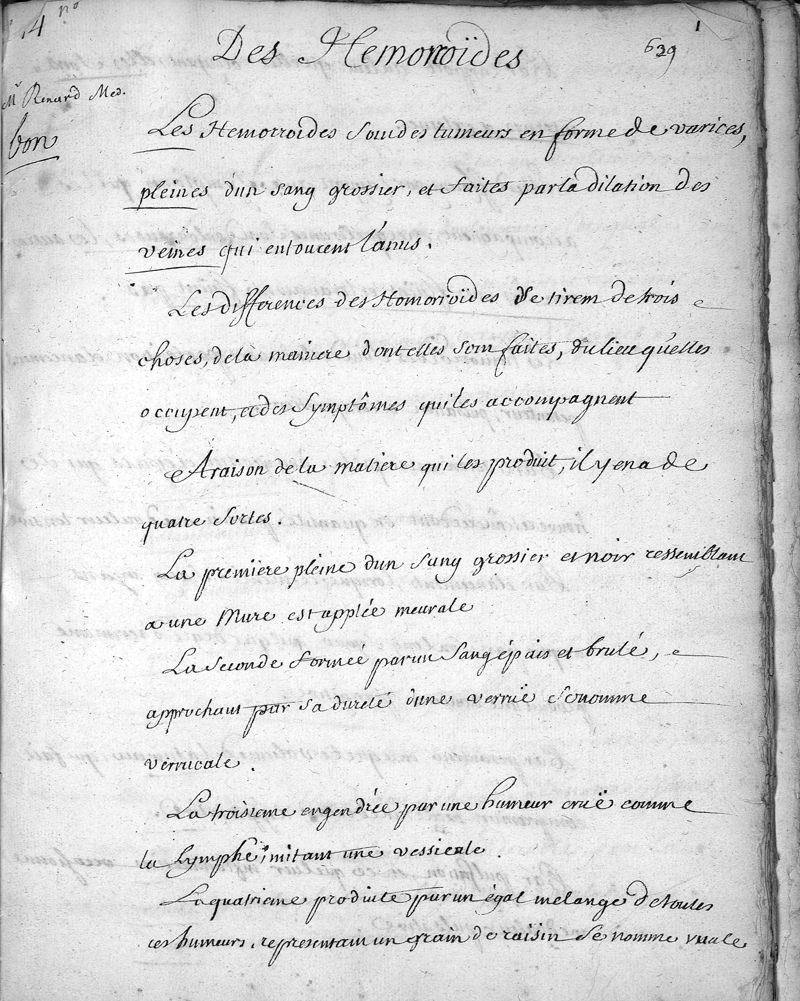 4 no
1
Des Hemorroïdes
629
Mr Renard Med.
bon
Les Hemorroides sont des tumeurs en forme de varices,
pleines d'un sang grossier, et faites par la dilation des
veines qui entourent l'anus.
Les differences des Homorroïdes se tirent de trois
choses, de la maniere dont elles sont faites, du lieu qu'elles
occupent, et des symptômes qui les accompagnent
A raison de la matiere qui les produit, il y en a de
quatre sortes.
La premiere pleine d'un sang grossier et noir ressemblant
a une Mure est applée meurale
La seconde formée par un sang épais et brulé,
approchant par sa dureté d'une verruë se nomme
verrucale.
La troisieme engendrée par une humeur cruë comme
la lymphe, imitant une vessie.
La quatrieme produite par un égal mélange de toutes
ces humeurs, representant un grain de raisin se nomme uvale